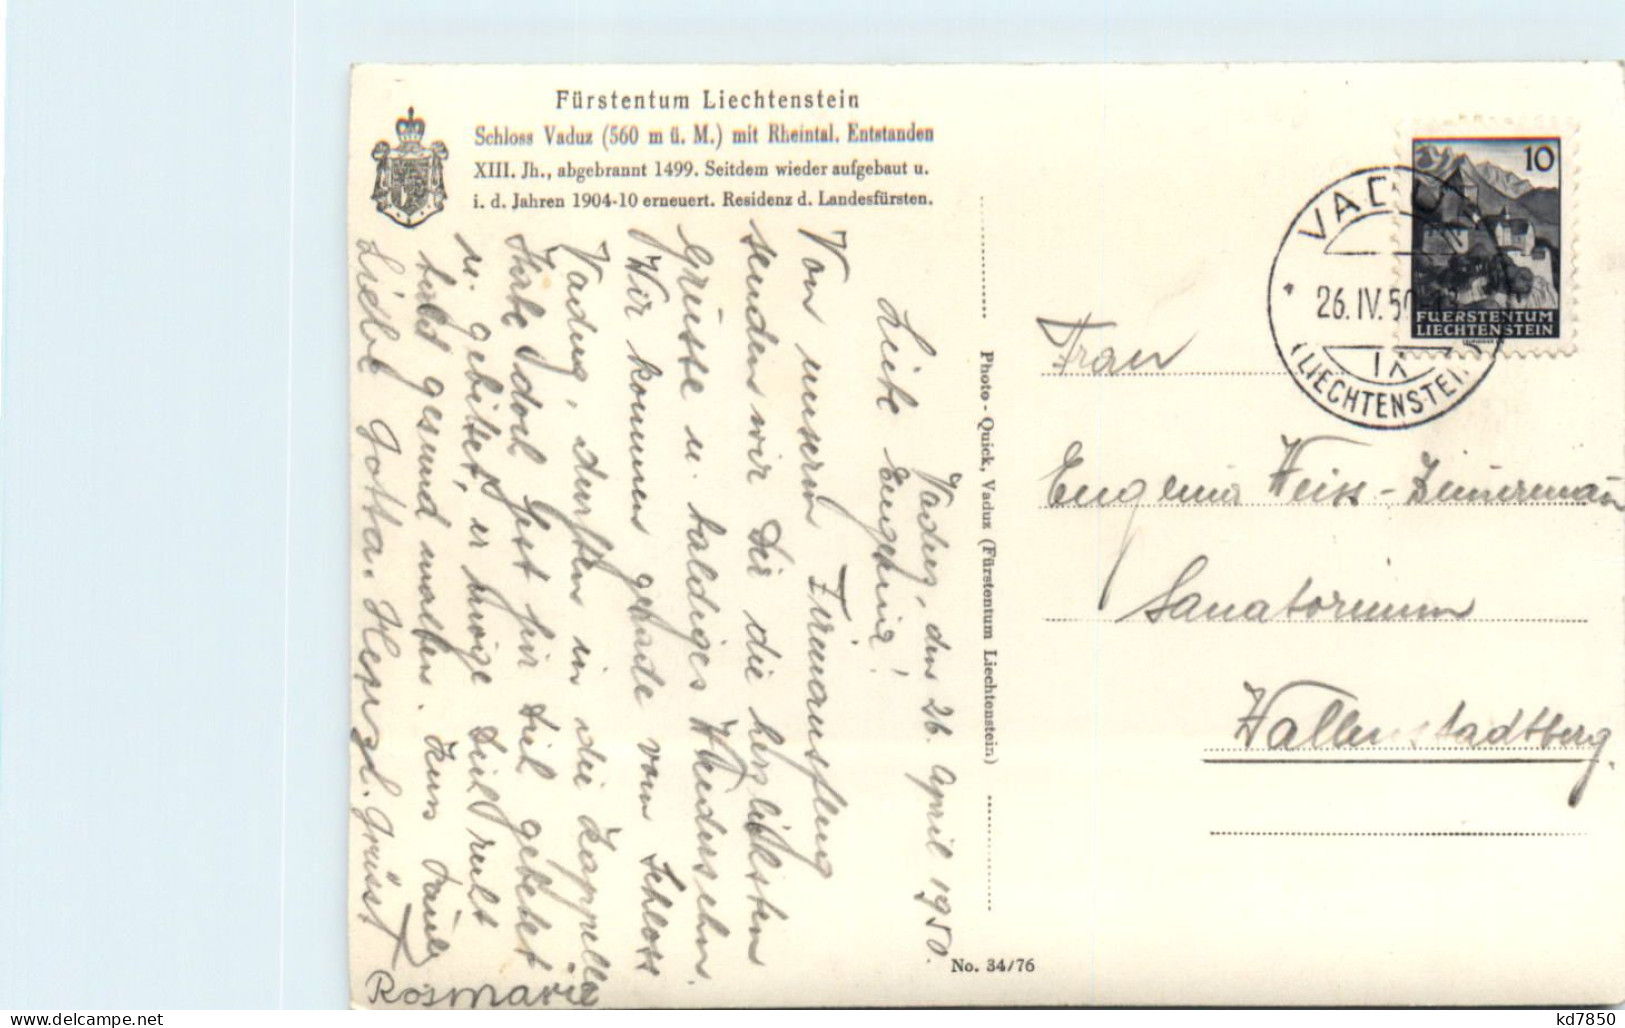 Fürstentum Liechtenstein
Schloss Vaduz (560 m ü. M.) mit Rheintal. Entstanden
XIII. Jh., abgebrannt 1499. Seitdem wieder aufgebaut u.
i. d. Jahren 1904-10 erneuert. Residenz d. Landesfürsten.
Vaduz, den 26. April 1950.
Liebe Eugenia!
Von unserm Firmausflug
senden wir Dir die herzlichsten
Grüsse u. baldiges Wiedersehn.
Wir kommen gerade vom Schloss
Vaduz, durften in die Kappelle
Habe doch fest für Dich gebetet
u. gebittet, er möge Dich recht
bald gesund machen.
Liebe Gotta. Herzl. Grüsst
Rosmarie
Photo-Quick, Vaduz (Fürstentum Liechtenstein)
No. 34/76
VADUZ
26. IV. 50
IX
(LIECHTENSTEIN)
10
FUERSTENTUM
LIECHTENSTEIN
Frau
Eugenia Weiss-Zimmermann
Sanatorium
Wallenstadtberg.
kd7850